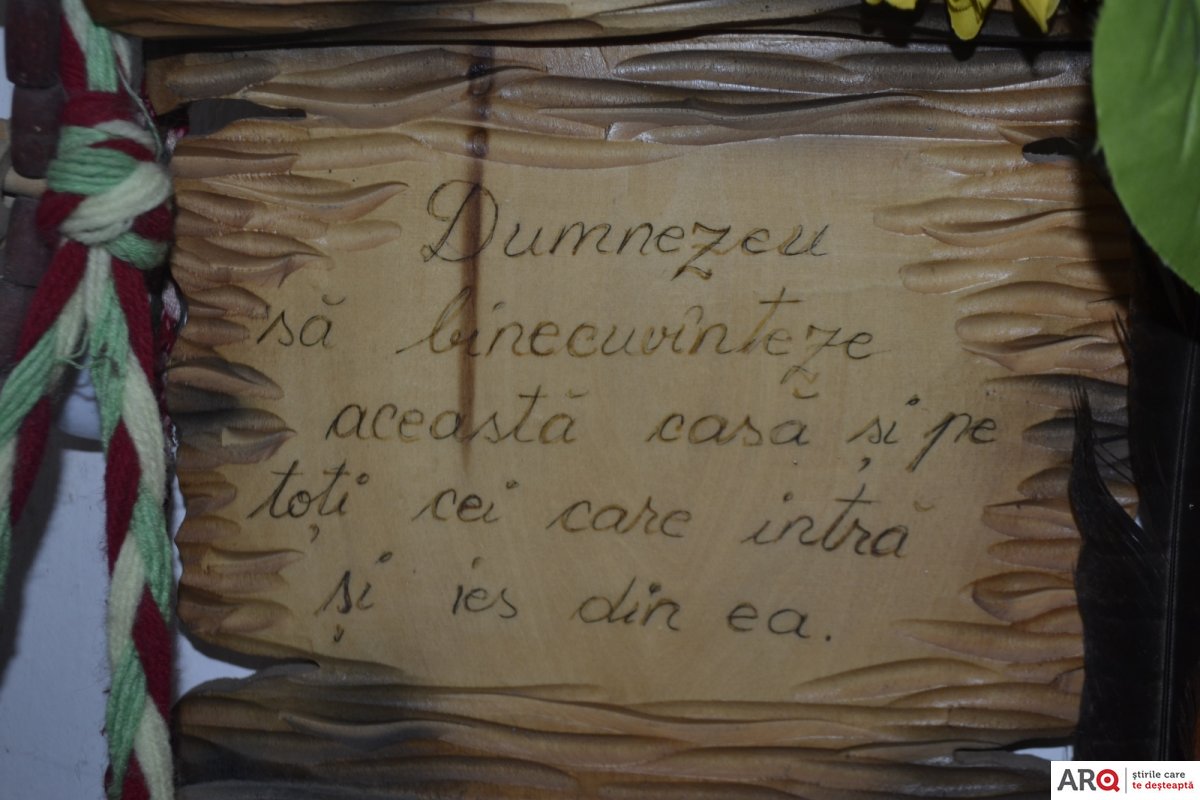 Dumnezeu
să binecuvînteze
această casă și pe
toți cei care intră
și ies din ea.
ARQ știrile care
te deșteaptă